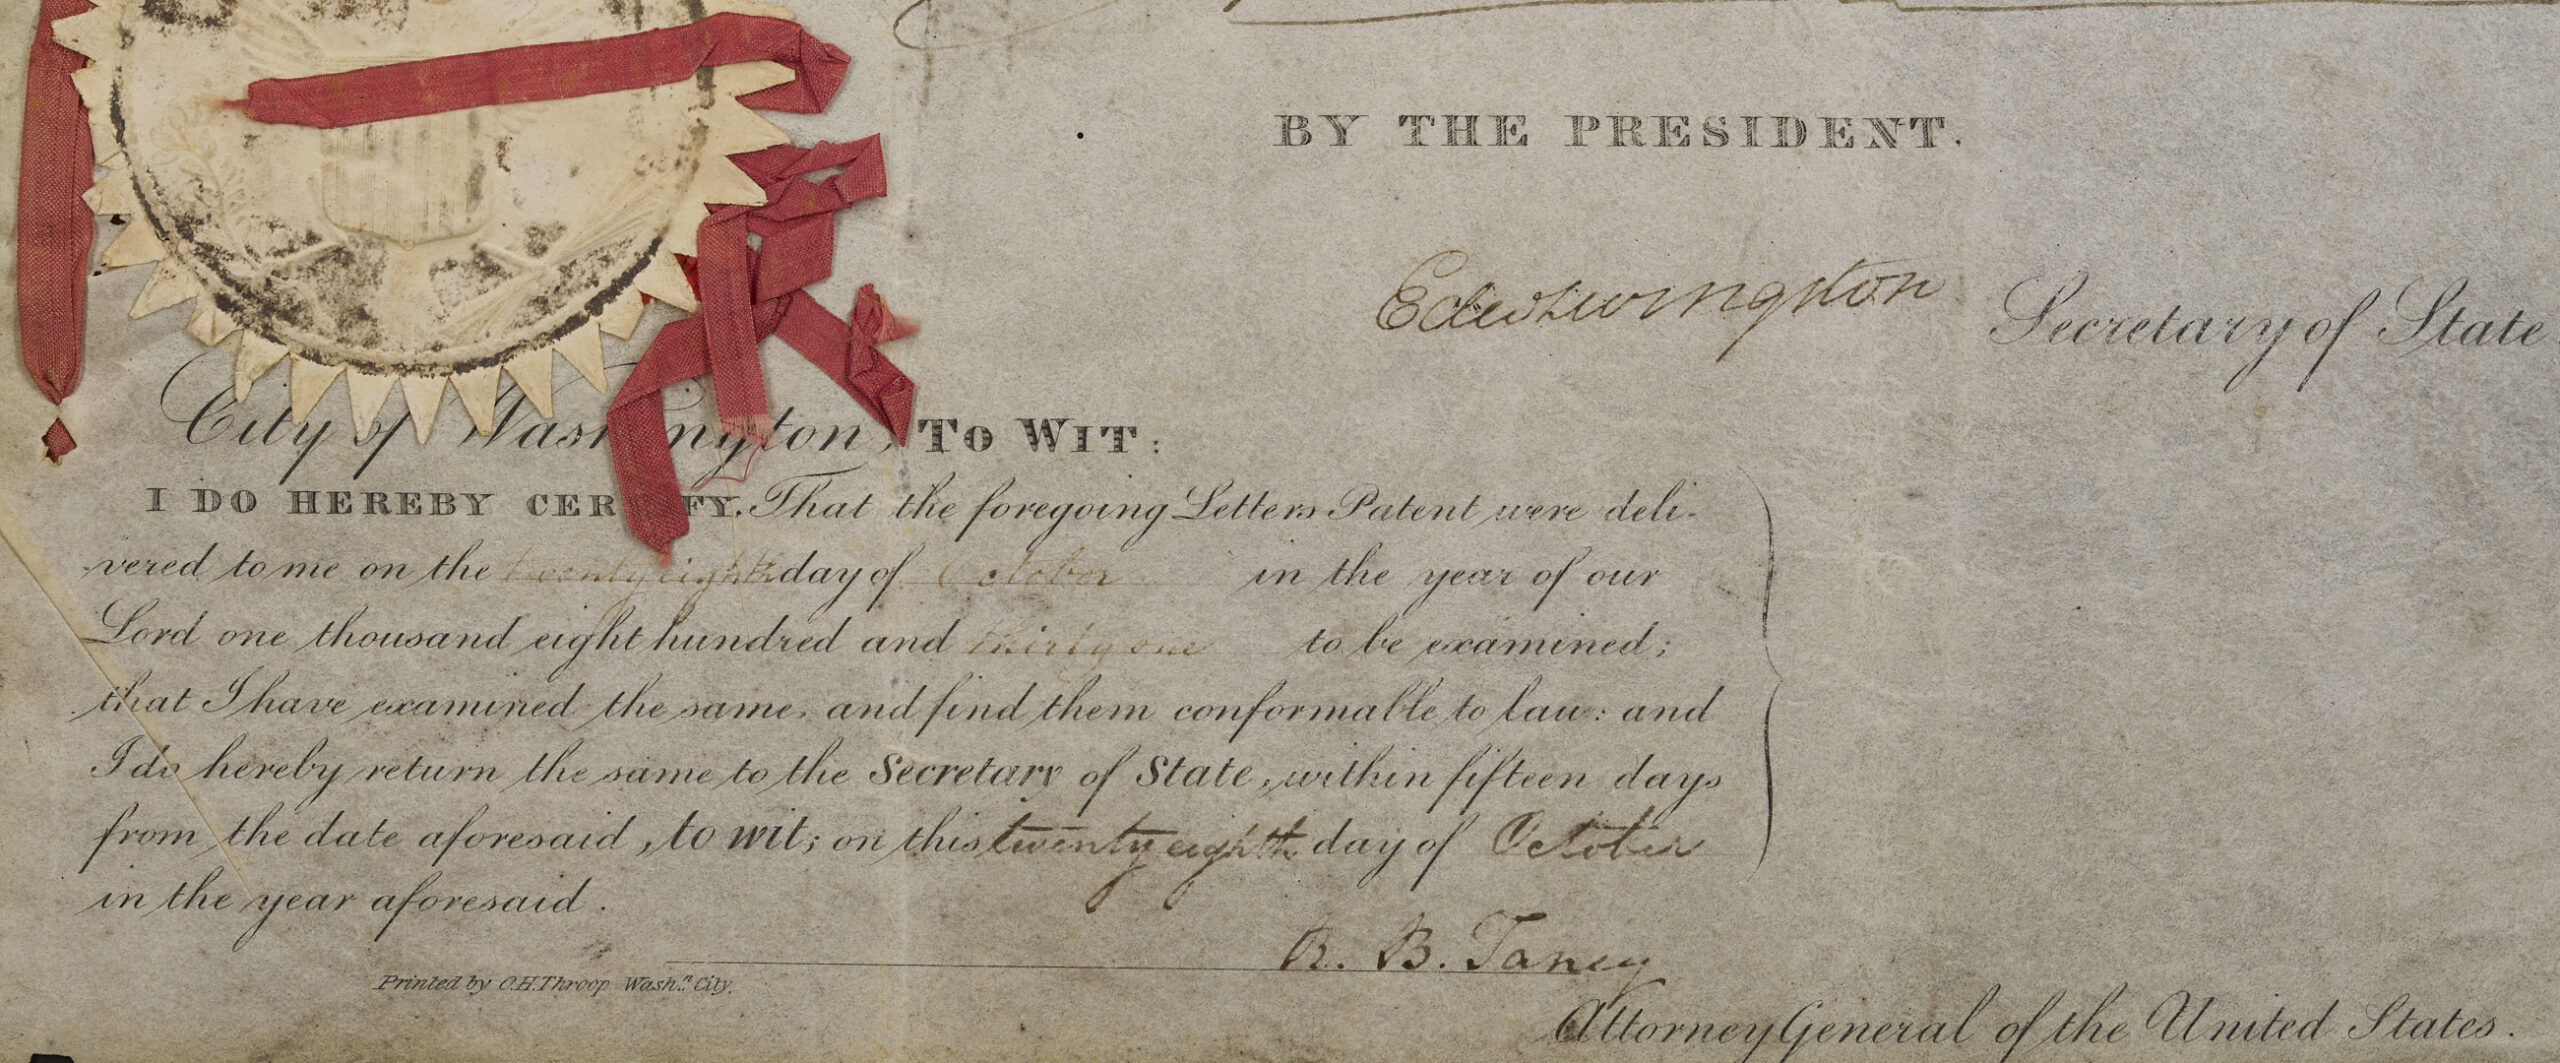 BY THE PRESIDENT.
Edw Livingston Secretary of State.
City of Washington, TO WIT:
I DO HEREBY CERTIFY, That the foregoing Letters Patent were deli-
vered to me on the twenty eighth day of October in the year of our
Lord one thousand eight hundred and thirty one to be examined;
that I have examined the same, and find them conformable to law: and
I do hereby return the same to the Secretary of State, within fifteen days
from the date aforesaid, to wit; on this twenty eighth day of October
in the year aforesaid.
R. B. Taney
Printed by O.H. Throop Wash.n City.
Attorney General of the United States.